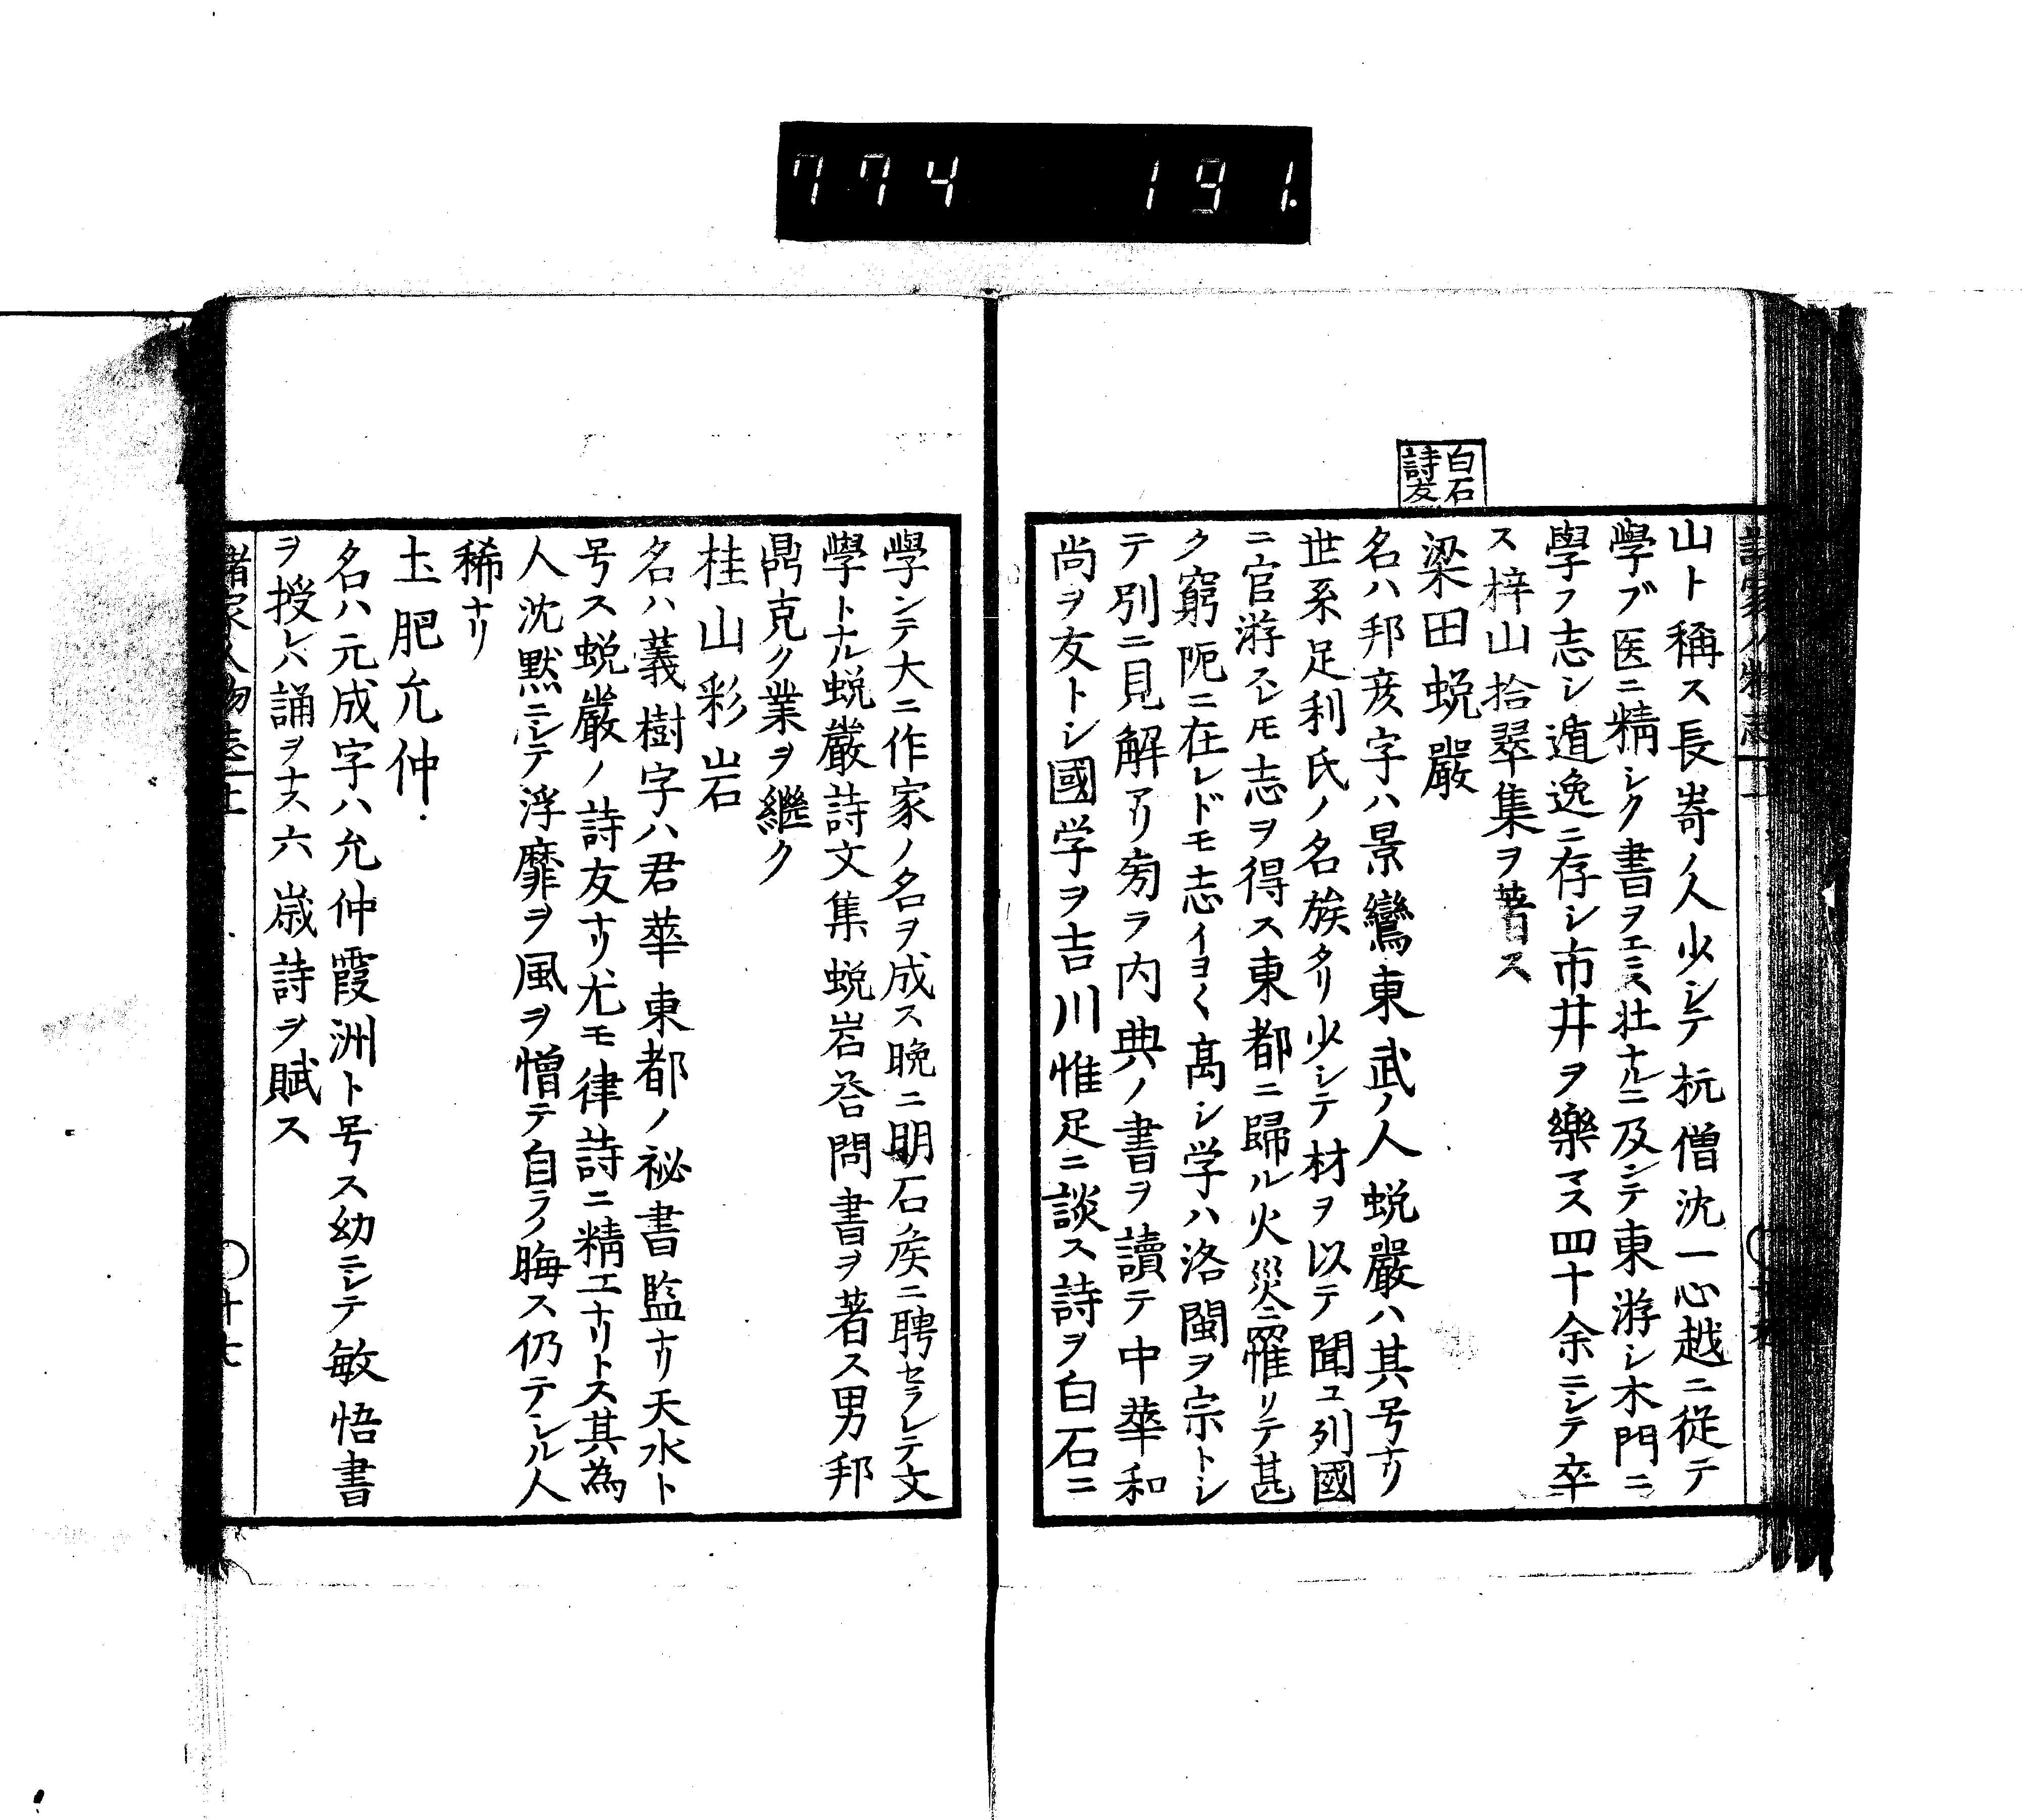 774 191.
白石
詩友
山ト稱ス長嵜ノ人少シテ杭僧沈一心越ニ從テ
學ブ医ニ精シク書ヲ工ミス壮ナルニ及シテ東游シ木門ニ
學フ志シ遁逸ニ存シ市井ヲ樂マス四十余ニシテ卒
ス梓山拾翠集ヲ著ス
梁田蛻巖
名ハ邦彦字ハ景鸞東武ノ人蛻巖ハ其号ナリ
世系足利氏ノ名族タリ少シテ材ヲ以テ聞ユ列國
ニ官游スレ𪜈志ヲ得ス東都ニ歸ル火災ニ罹リテ甚
ク窮阨ニ在レドモ志イヨ〱高シ学ハ洛閩ヲ宗トシ
テ別ニ見解アリ旁ラ内典ノ書ヲ讀テ中華和
尚ヲ友トシ國学ヲ吉川惟足ニ談ス詩ヲ白石ニ
學ンテ大ニ作家ノ名ヲ成ス晩ニ明石矦ニ聘セラレテ文
學トナル蛻巖詩文集蛻岩荅問書ヲ著ス男邦
鼎克ク業ヲ継ク
桂山彩岩
名ハ義樹字ハ君華東都ノ祕書監ナリ天水ト
号ス蛻巖ノ詩友ナリ尤モ律詩ニ精エナリトス其為
人沈黙ニシテ浮靡ヲ風ヲ憎テ自ラノ晦ス仍テシル人
稀ナリ
土肥允仲
名ハ元成字ハ允仲霞洲ト号ス幼ニシテ敏悟書
ヲ授レハ誦ヲナス六歳詩ヲ賦ス
諸家人物志 上
〇十七